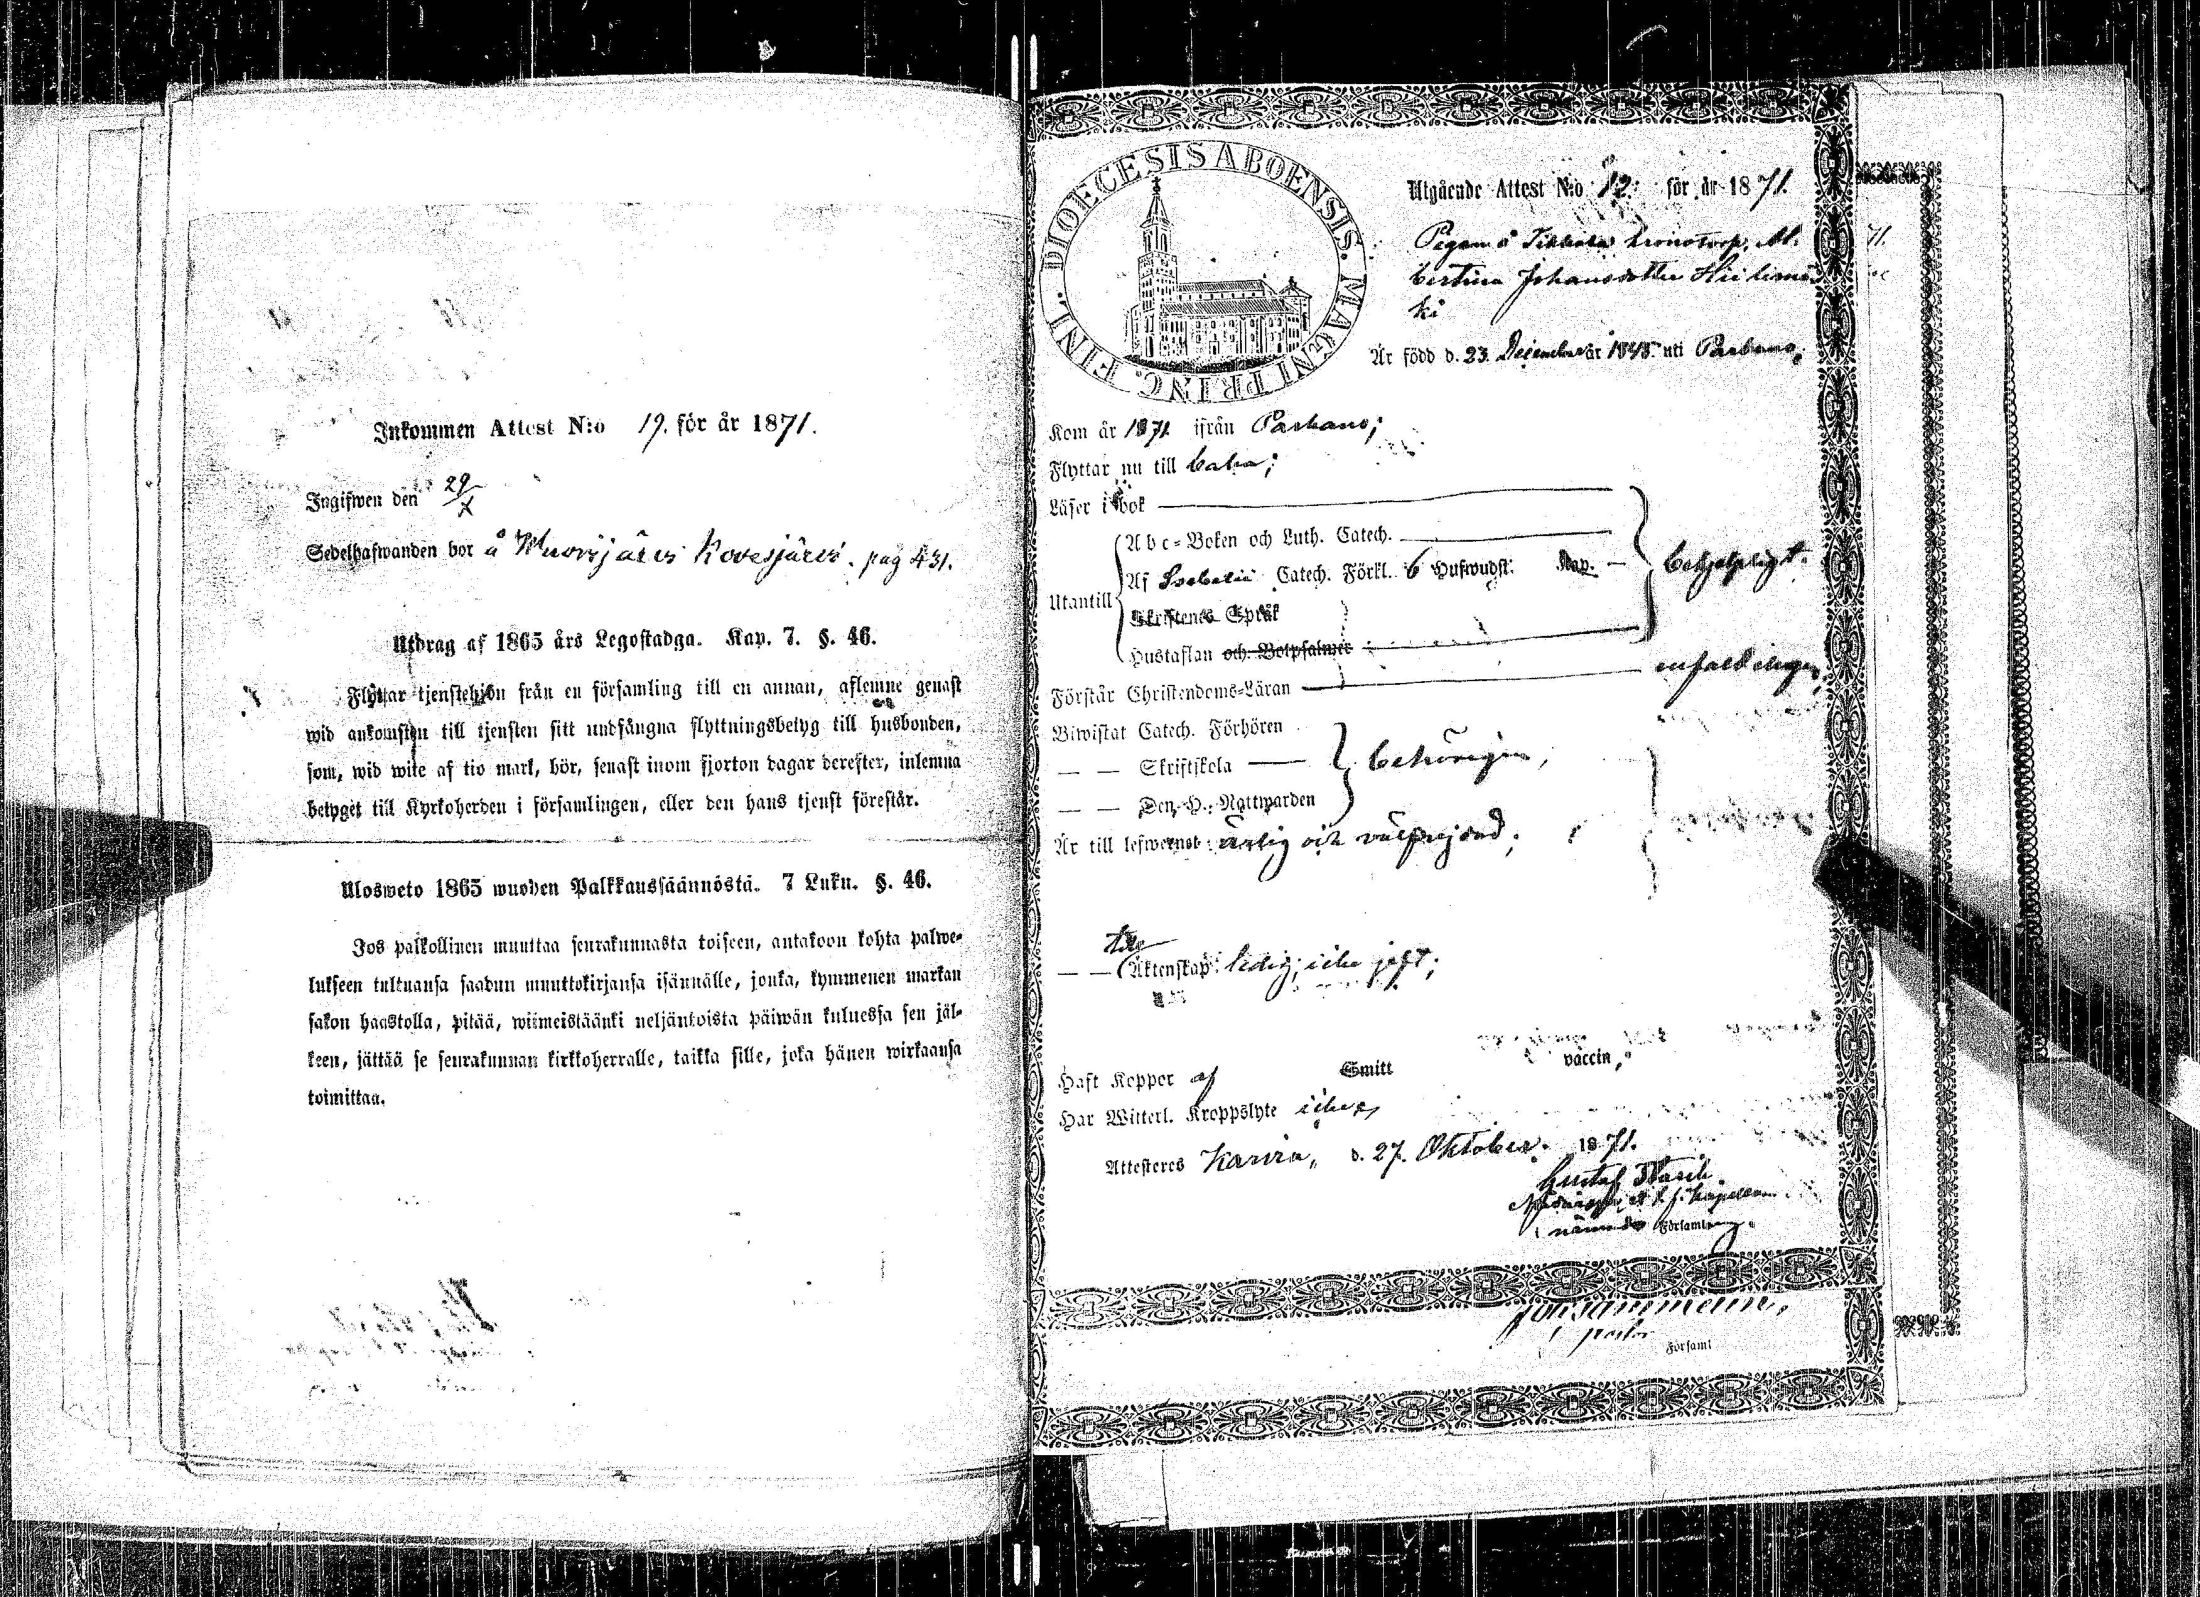 Inkommen Attest N:o 19. för år 1871.
Ingifwen den 29/X
Sedelhafwanden bor å Kovesjärvi. pag 431.
Utdrag af 1865 års Legostadga. Kap. 7. §. 46.
Flyttar tjenstehjon från en församling till en annan, aflemne genast
wid ankomsten till tjensten sitt undfångna flyttningsbetyg till husbonden,
som, wid wite af tio mark, bör, senast inom fjorton dagar derefter, inlemna
betyget till Kyrkoherden i församlingen, eller den hans tjenst förestår.
Ulosweto 1865 wuoden Palkkaussäännöstä. 7 Luku. §. 46.
Jos palkollinen muuttaa seurakunnasta toiseen, antakoon kohta palwe-
lukseen tultuansa saadun muuttokirjansa isännälle, jonka, kymmenen markan
sakon haastolla, pitää, wiimeistäänki neljäntoista päiwän kuluessa sen jäl-
keen, jättää se seurakunnan kirkkoherralle, taikka sille, joka hänen wirkaansa
toimittaa.
DIOECESIS ABOENSIS. MAGNI PRINC. FINL.
Utgående Attest N:o 12. för år 1871.
Pigan å
Johansdotter
ki
Är född d. 23. December år 1848. uti Parkano,
Kom år 1871 ifrån Parkano;
Flyttar nu till
Läser i bok
Utantill
Abc-Boken och Luth. Catech.
Af Catech. Förkl. 6 Hufwudst. Kap.
behjelpligt.
Skriftenes Språk
Hustaflan och Botpsalmer
Förstår Christendoms-Läran enfaldeligen,
Biwistat Catech. Förhören
— — Skriftskola behörigen,
— — Den H. Nattwarden
Är till lefwernet ärlig och välfrejdad;
— — till Äktenskap: ledig; icke gift;
Haft Koppor af Smitt vaccin,
Har Witterl. Kroppslyte icke,
Attesteres Karvia, d. 27. Oktober. 1871.
Gustaf
nämnde Församling.
pastor
Församl
71.